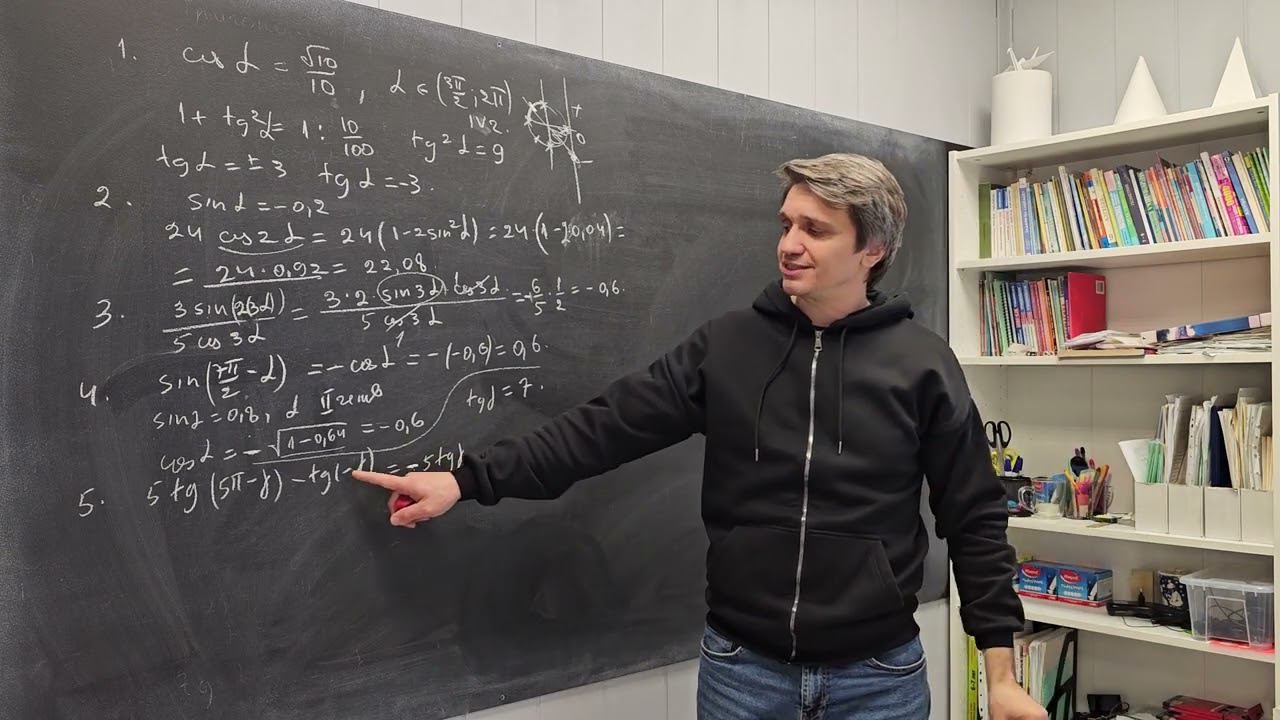 1. cos α = √10/10 , α ∈ (3π/2 ; 2π)
IV г.
1 + tg²α = 1 : 10/100 tg²α = 9
tg α = ± 3 tg α = -3.
+
0
-
2. sin α = -0,2
24 cos 2α = 24 (1 - 2sin²α) = 24 · (1 - 2·0,04) =
= 24 · 0,92 = 22,08
3. 3 sin(2·3α) / 5 cos 3α = 3 · 2 · sin 3α · cos 3α / 5 cos 3α = -6/5 · 1/2 = -0,6.
4. sin(7π/2 - α) = - cos α = -(-0,6) = 0,6.
sin α = 0,8, α II четв
cos α = - √1-0,64 = -0,6
tg γ = 7.
5. 5 tg (5π - γ) - tg(-γ) = -5 tg γ
Maped
Maped